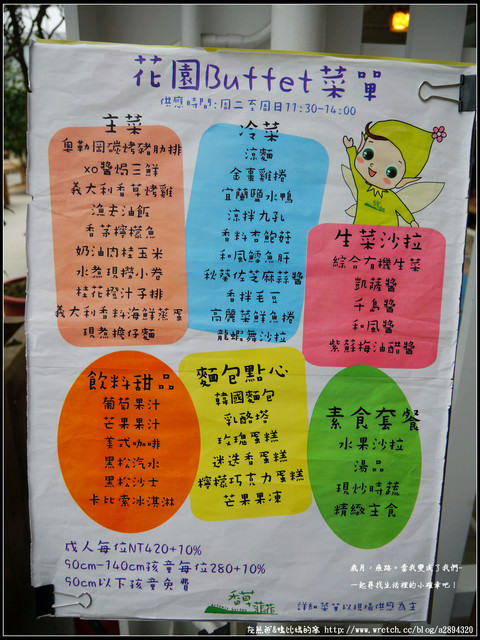 花園Buffet菜單
供應時間:周二至周日11:30-14:00
主菜
奧勒岡碳烤豬肋排
xo醬焗三鮮
義大利香草烤雞
漁夫油飯
香茅檸檬魚
奶油肉桂玉米
水煮現撈小卷
桂花橙汁子排
義大利香料海鮮蒸蛋
現煮擔仔麵
冷菜
涼麵
金棗雞捲
宜蘭鹽水鴨
涼拌九孔
香料杏鮑菇
和風鱈魚肝
秋葵佐芝麻蒜醬
香拌毛豆
高麗菜鮮魚捲
龍蝦舞沙拉
生菜沙拉
綜合有機生菜
凱薩醬
千島醬
和風醬
紫蘇梅油醋醬
飲料甜品
葡萄果汁
芒果果汁
美式咖啡
黑松汽水
黑松沙士
卡比索冰淇淋
麵包點心
韓國麵包
乳酪塔
玫瑰蛋糕
迷迭香蛋糕
檸檬巧克力蛋糕
芒果果凍
素食套餐
水果沙拉
湯品
現炒時蔬
精緻主食
成人每位NT420+10%
90cm-140cm孩童每位280+10%
90cm以下孩童免費
香草菲花
詳細菜單以現場供應為主
歲月。痕跡。當我變成了我們~
一起尋找生活裡的小確幸吧!
http://www.wretch.cc/blog/a2894320